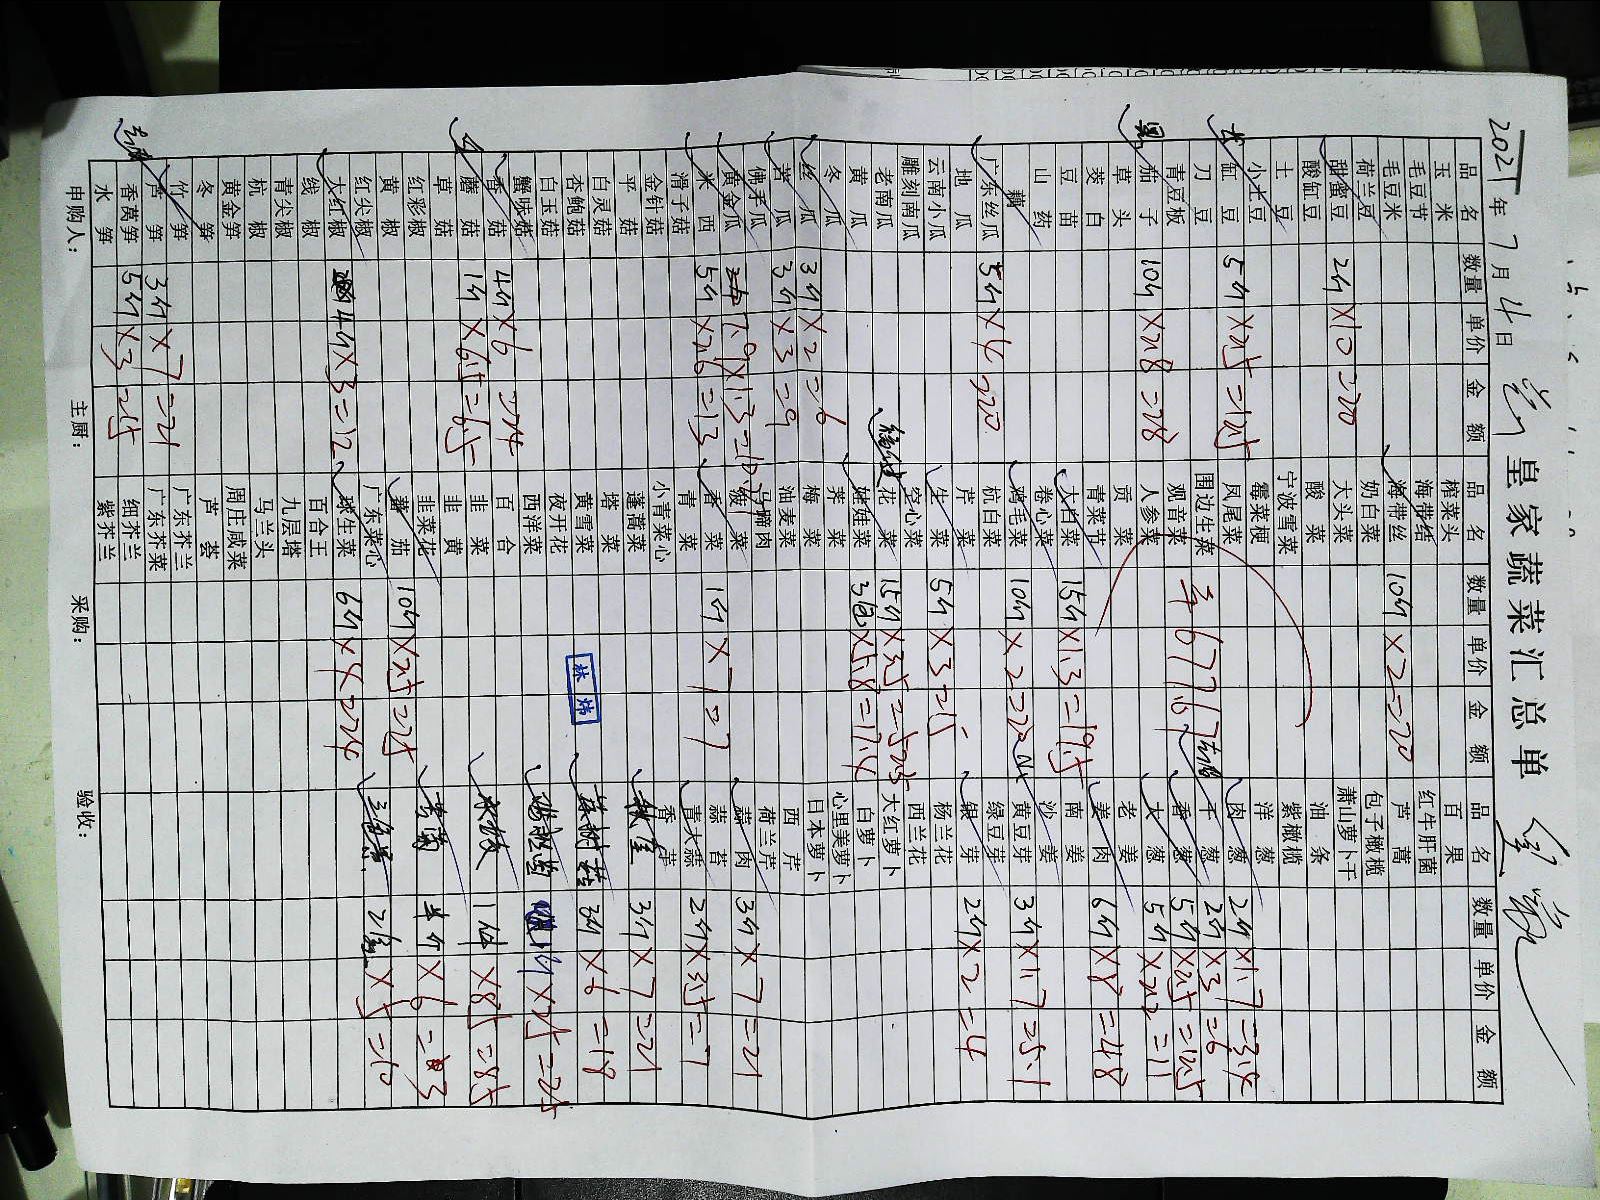 2021年7月4日 皇家蔬菜汇总单
品名 数量 单价 金额 品名 数量 单价 金额 品名 数量 单价 金额
玉米 榨菜头 百果
毛豆节 海带结 红牛肝菌
毛豆米 海带丝 10斤×2=20 芦蒿
荷兰豆 奶白菜 包子橄榄
甜蜜豆 2斤×10=20 大头菜 萧山萝卜干
酸缸豆 酸菜 油条
土豆 宁波雪菜 紫橄榄
小土豆 霉菜梗 洋葱
缸豆 5斤×2.5=12.5 凤尾菜 肉葱 2斤×1.7=3.4
刀豆 围边生菜 干葱 2斤×3=6
青豆板 观音菜 677.67 香葱 5斤×2.5=12.5
茄子 10斤×2.8=28 人参菜 大葱 5斤×2.2=11
草头 贡菜 老姜
茭白 青菜节 姜肉 6斤×8=48
豆苗 大白菜 15斤×1.3=19.5 南姜
山药 卷心菜 沙姜
藕 鸡毛菜 10斤×2.2=22 黄豆芽 3斤×1.7=5.1
广东丝瓜 5斤×4=20 杭白菜 绿豆芽
地瓜 芹菜 银芽 2斤×2=4
云南小瓜 生菜 5斤×3=15 杨兰花
雕刻南瓜 空心菜 西兰花
老南瓜 花菜 15斤×3.5=52.5 大红萝卜
黄瓜 娃娃菜 3包×5.8=17.4 白萝卜
冬瓜 荠菜 心里美萝卜
丝瓜 3斤×2=6 梅菜 日本萝卜
苦瓜 3斤×3=9 油麦菜 西芹
佛手瓜 马蹄肉 荷兰芹
黄金瓜 7.9×1.3=10.27 菠菜 蒜肉 3斤×7=21
西米 5斤×2.6=13 香菜 1斤×7=7 蒜苔
滑子菇 青菜 青大蒜 2斤×3.5=7
金针菇 小青菜心 香芋
平菇 蓬蒿菜 秋葵 3斤×7=21
白灵菇 塔菜
杏鲍菇 黄雪菜 林炜 茶树菇 3斤×6=18
白玉菇 夜开花
蟹味菇 西洋菜 1斤×25=25
香菇 4斤×6=24 百合
蘑菇 1斤×6.5=6.5 韭菜 1件×85=85
草菇 韭黄
红彩椒 韭菜花 半斤×6=3
黄椒 番茄 10斤×2.5=25
红尖椒 广东菜心 三色堇 2盒×5=10
大红椒 4斤×3=12 球生菜 6斤×4=24
线椒 百合王
青尖椒 九层塔
杭椒 马兰头
黄金笋 周庄咸菜
冬笋 芦荟
竹笋 广东芥兰
芦笋 3斤×7=21 广东芥菜
香莴笋 5斤×3=15 细芥兰
水笋 紫芥兰
申购人： 主厨： 采购： 验收：